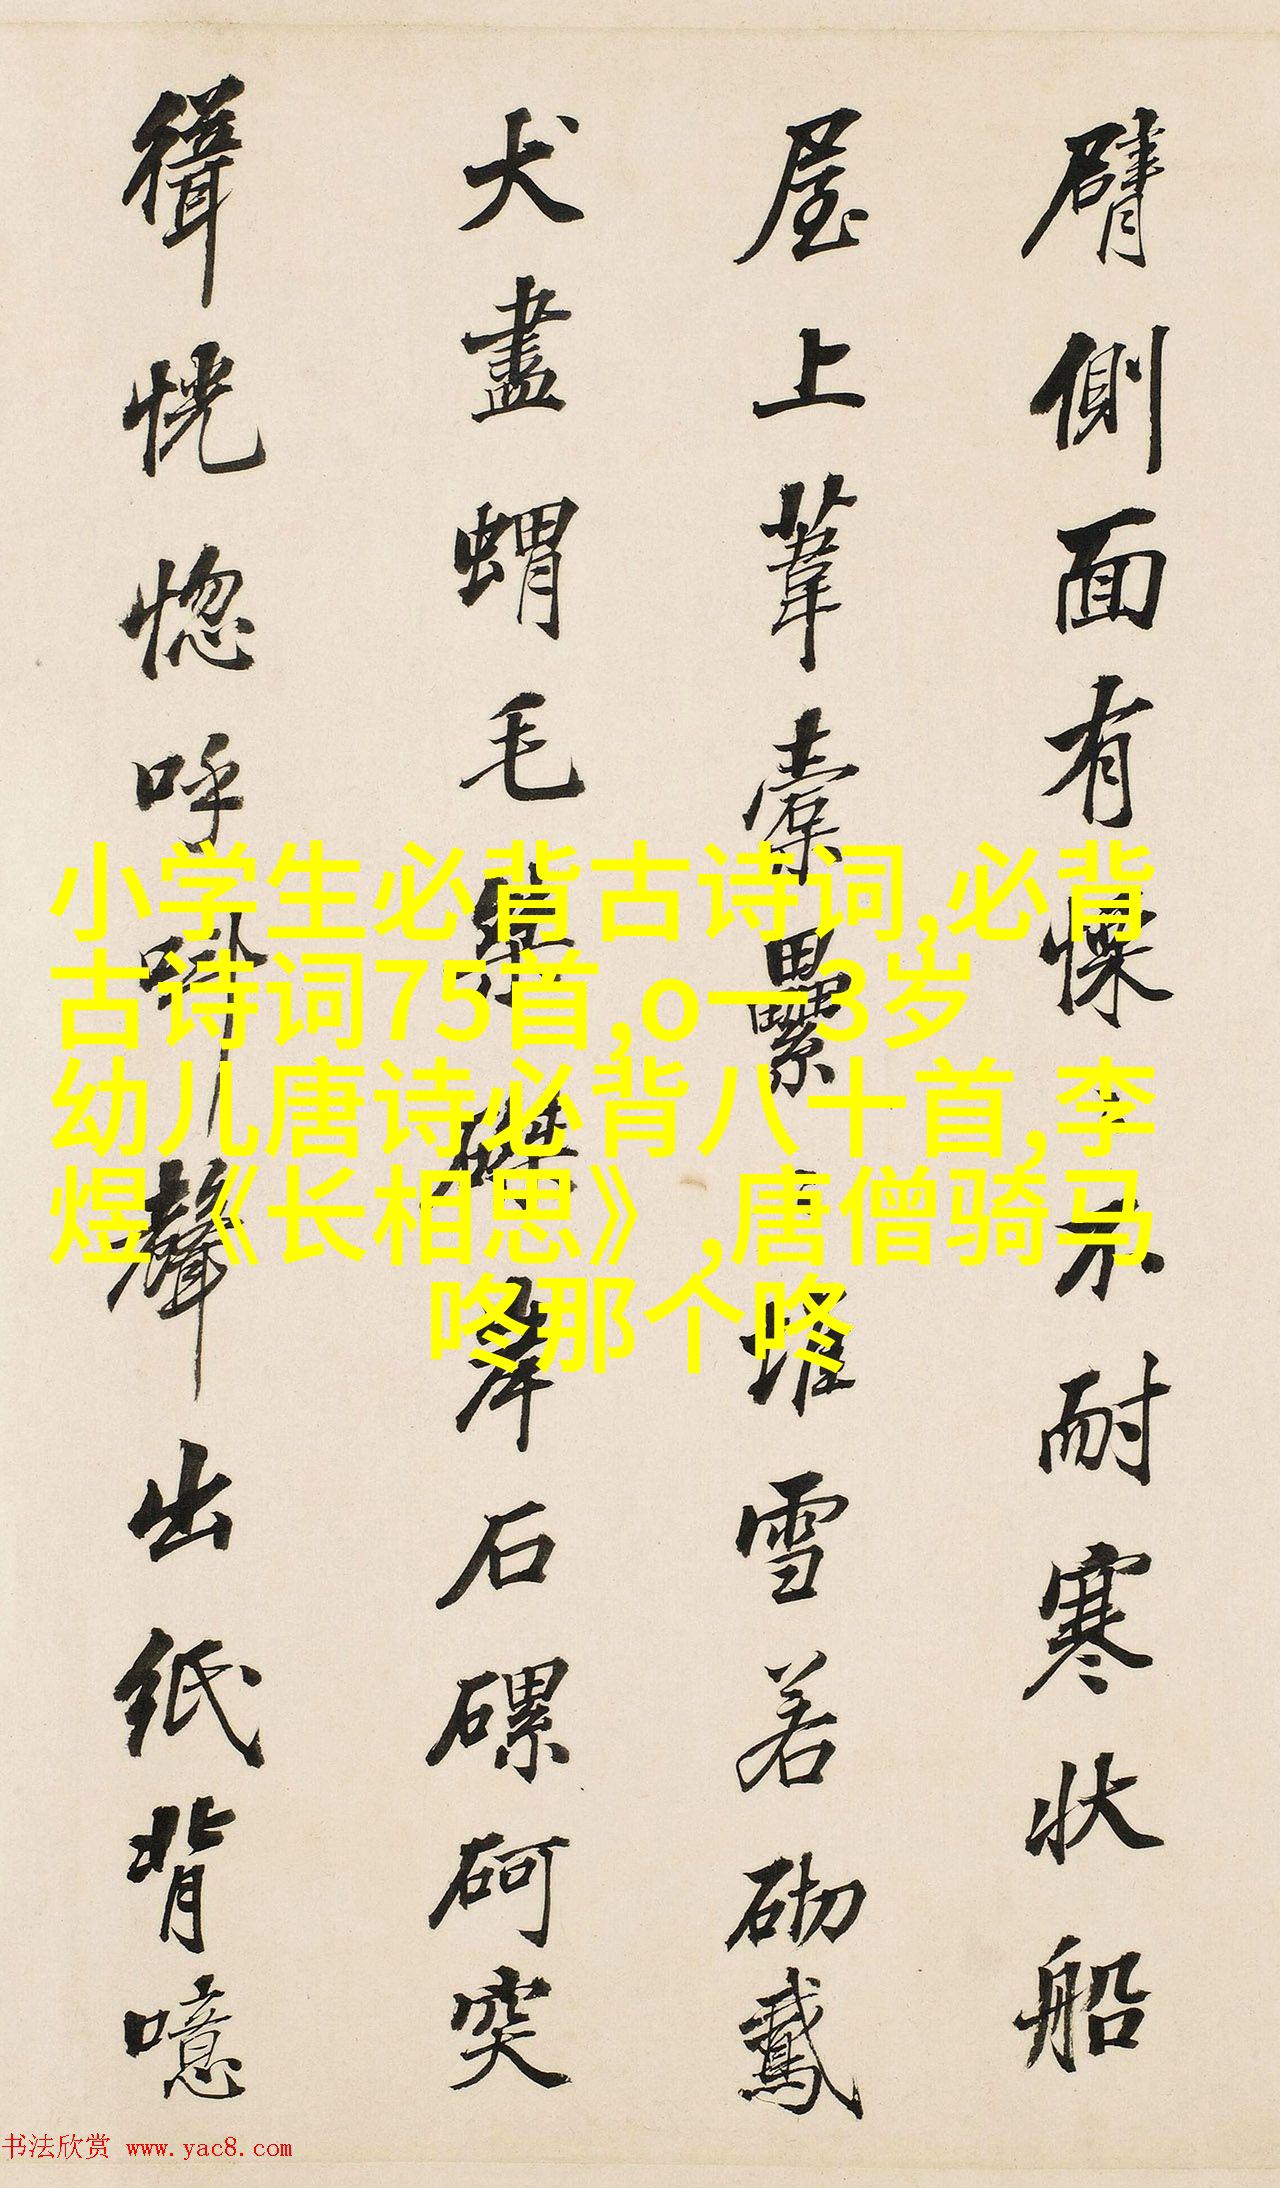 臂側面有慄〻不耐寒狀船
屋上葦橐纍〻堆雪若砌鳶
犬盡蝟毛磔石磥砢突
緝恍惚呼聲出紙背噫
小学生必背古诗词,必背
古诗词75首,o一3岁
幼儿唐诗必背八十首,李
煜《长相思》,唐僧骑马
咚那个咚
书法欣赏 www.yac8.com